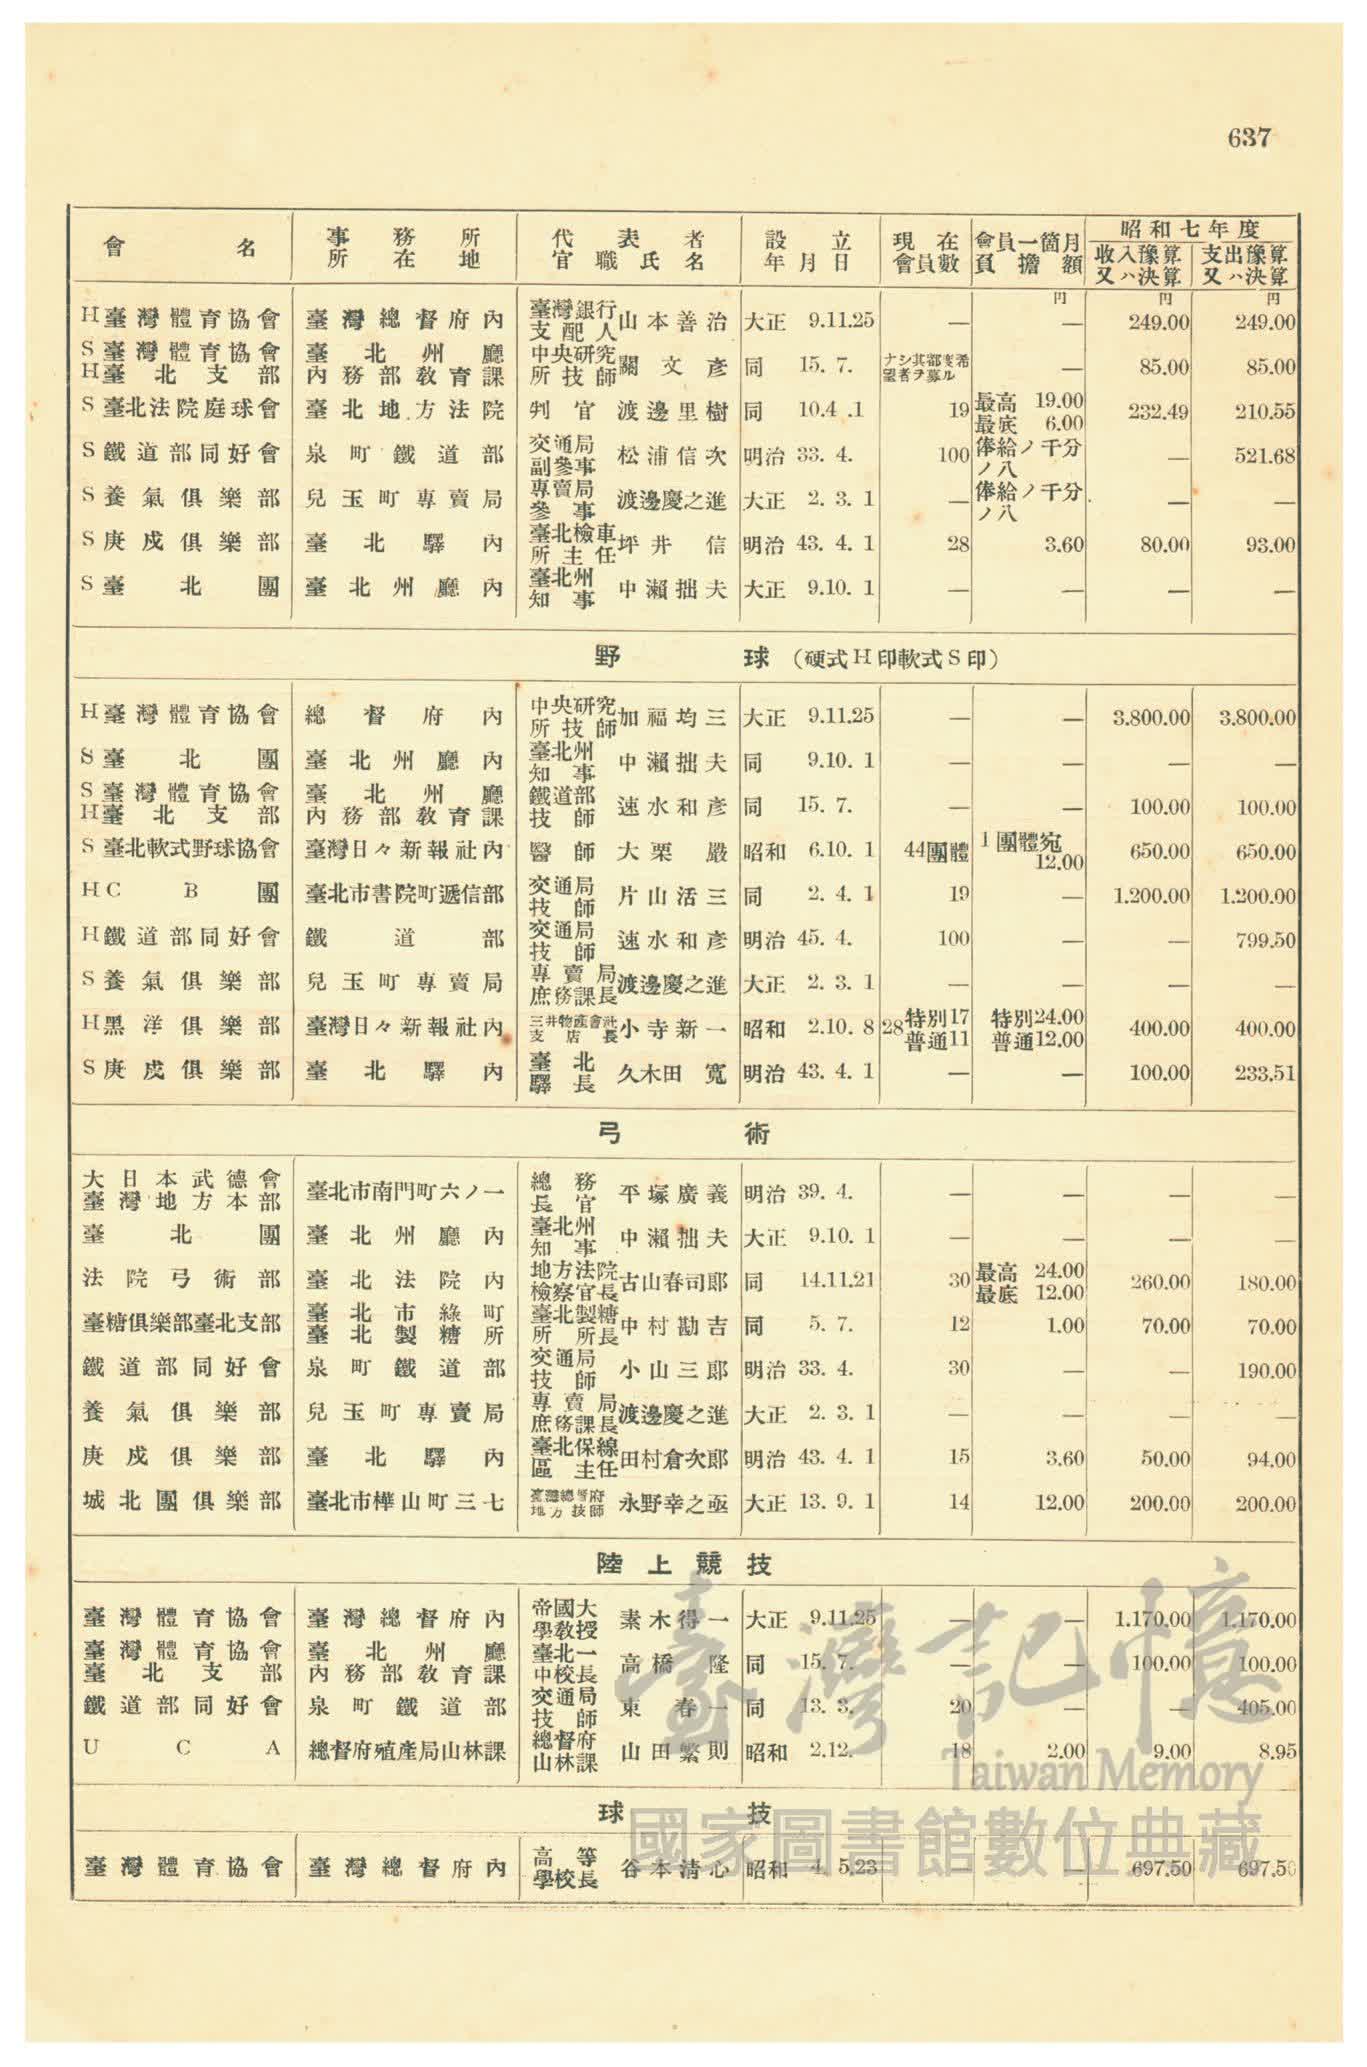 637
會名 事務所所在地 代表者官職氏名 設立年月日 現在會員數 會員一箇月負擔額 昭和七年度
收入豫算又ハ決算 支出豫算又ハ決算
円 円 円
H臺灣體育協會 臺灣總督府內 臺灣銀行支配人 山本善治 大正 9.11.25 — — 249.00 249.00
S臺灣體育協會H臺北支部 臺北州廳內務部教育課 中央研究所技師 關文彥 同 15. 7. ナシ其都度希望者ヲ募ル — 85.00 85.00
S臺北法院庭球會 臺北地方法院 判官 渡邊里樹 同 10.4 .1 19 最高 19.00 最底 6.00 232.49 210.55
S鐵道部同好會 泉町鐵道部 交通局副參事 松浦信次 明治 33. 4. 100 俸給ノ千分ノ八 — 521.68
S養氣俱樂部 兒玉町專賣局 專賣局參事 渡邊慶之進 大正 2. 3. 1 — 俸給ノ千分ノ八 — —
S庚戍俱樂部 臺北驛內 臺北檢車所主任 坪井信 明治 43. 4. 1 28 3.60 80.00 93.00
S臺北團 臺北州廳內 臺北州知事 中瀨拙夫 大正 9.10. 1 — — — —
野球(硬式H印軟式S印)
H臺灣體育協會 總督府內 中央研究所技師 加福均三 大正 9.11.25 — — 3.800.00 3.800.00
S臺北團 臺北州廳內 臺北州知事 中瀨拙夫 同 9.10. 1 — — — —
S臺灣體育協會H臺北支部 臺北州廳內務部教育課 鐵道部技師 速水和彥 同 15. 7. — — 100.00 100.00
S臺北軟式野球協會 臺灣日々新報社內 醫師 大栗嚴 昭和 6.10. 1 44團體 1團體宛 12.00 650.00 650.00
HCB團 臺北市書院町遞信部 交通局技師 片山活三 同 2. 4. 1 19 — 1.200.00 1.200.00
H鐵道部同好會 鐵道部 交通局技師 速水和彥 明治 45. 4. 100 — — 799.50
S養氣俱樂部 兒玉町專賣局 專賣局庶務課長 渡邊慶之進 大正 2. 3. 1 — — — —
H黑洋俱樂部 臺灣日々新報社內 三井物產會社支店長 小寺新一 昭和 2.10. 8 28 特別17 普通11 特別24.00 普通12.00 400.00 400.00
S庚戍俱樂部 臺北驛內 臺北驛長 久木田寬 明治 43. 4. 1 — — 100.00 233.51
弓術
大日本武德會臺灣地方本部 臺北市南門町六ノ一 總務長官 平塚廣義 明治 39. 4. — — — —
臺北團 臺北州廳內 臺北州知事 中瀨拙夫 大正 9.10. 1 — — — —
法院弓術部 臺北法院內 地方法院檢察官長 古山春司郎 同 14.11.21 30 最高 24.00 最底 12.00 260.00 180.00
臺糖俱樂部臺北支部 臺北市綠町臺北製糖所 臺北製糖所所長 中村勘吉 同 5. 7. 12 1.00 70.00 70.00
鐵道部同好會 泉町鐵道部 交通局技師 小山三郎 明治 33. 4. 30 — — 190.00
養氣俱樂部 兒玉町專賣局 專賣局庶務課長 渡邊慶之進 大正 2. 3. 1 — — — —
庚戍俱樂部 臺北驛內 臺北保線區主任 田村倉次郎 明治 43. 4. 1 15 3.60 50.00 94.00
城北團俱樂部 臺北市樺山町三七 臺灣總督府地方技師 永野幸之亟 大正 13. 9. 1 14 12.00 200.00 200.00
陸上競技
臺灣體育協會 臺灣總督府內 帝國大學教授 素木得一 大正 9.11.25 — — 1.170.00 1.170.00
臺灣體育協會臺北支部 臺北州廳內務部教育課 臺北一中校長 高橋隆 同 15. 7. — — 100.00 100.00
鐵道部同好會 泉町鐵道部 交通局技師 東春一 同 13. 3. 20 — — 405.00
UCA 總督府殖產局山林課 總督府山林課 山田繁則 昭和 2.12. 18 2.00 9.00 8.95
球技
臺灣體育協會 臺灣總督府內 高等學校長 谷本清心 昭和 4. 5.23 — — 697.50 697.50
臺灣記憶
Taiwan Memory
國家圖書館數位典藏